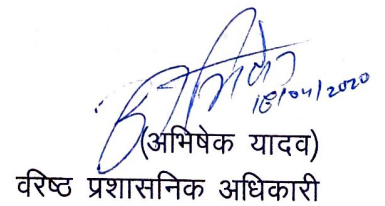 अभिषेक
16/04/2020
(अभिषेक यादव)
वरिष्ठ प्रशासनिक अधिकारी